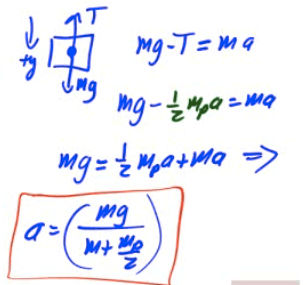 T
+y
mg
mg - T = ma
mg - 1/2 mₚa = ma
mg = 1/2 mₚa + ma ⇒
a = (mg / (m + mₚ/2))